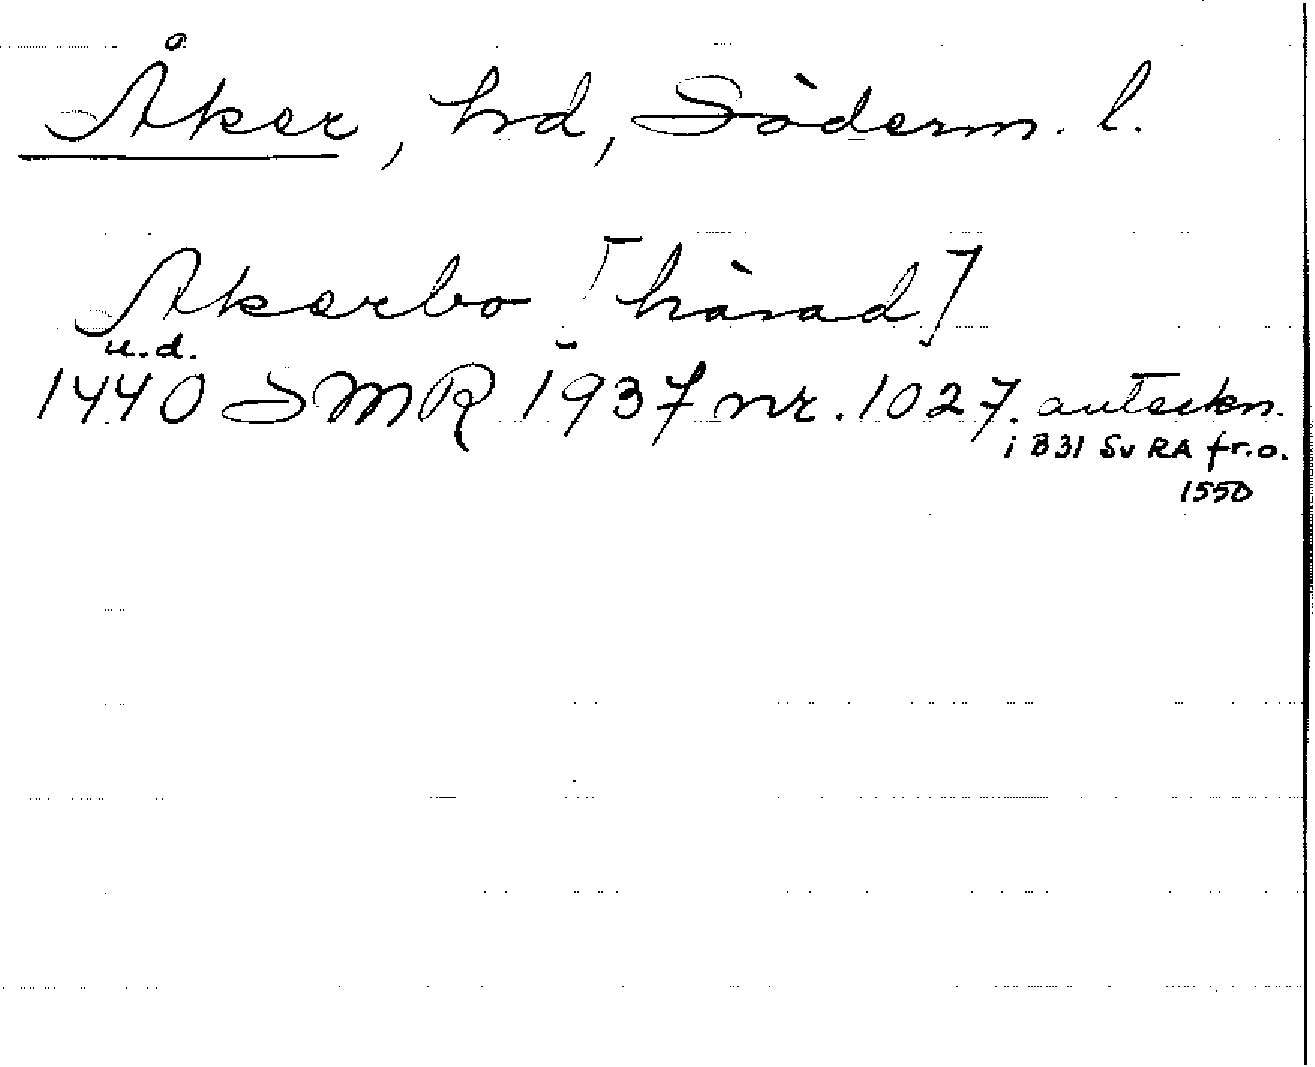 Åker, hd, Söderm. l.
Akerbo [härad]
u.d.
1440 SMR 1937 nr. 1027. anteckn.
i B31 Sv RA fr.o.
1550